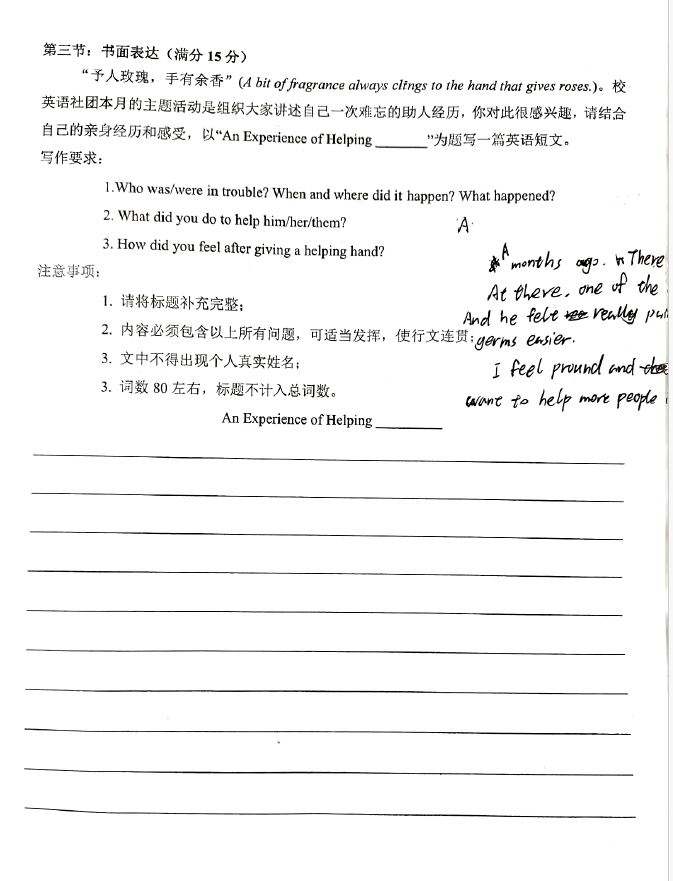 第三节：书面表达（满分 15 分）
“予人玫瑰，手有余香”(A bit of fragrance always clings to the hand that gives roses.)。校
英语社团本月的主题活动是组织大家讲述自己一次难忘的助人经历，你对此很感兴趣，请结合
自己的亲身经历和感受，以“An Experience of Helping ______”为题写一篇英语短文。
写作要求：
1.Who was/were in trouble? When and where did it happen? What happened?
2. What did you do to help him/her/them?
A.
3. How did you feel after giving a helping hand?
A months ago. There
注意事项：
At there, one of the
1. 请将标题补充完整；
And he felt really
2. 内容必须包含以上所有问题，可适当发挥，使行文连贯；
germs easier.
3. 文中不得出现个人真实姓名；
I feel pround and
3. 词数 80 左右，标题不计入总词数。
want to help more people
An Experience of Helping ________